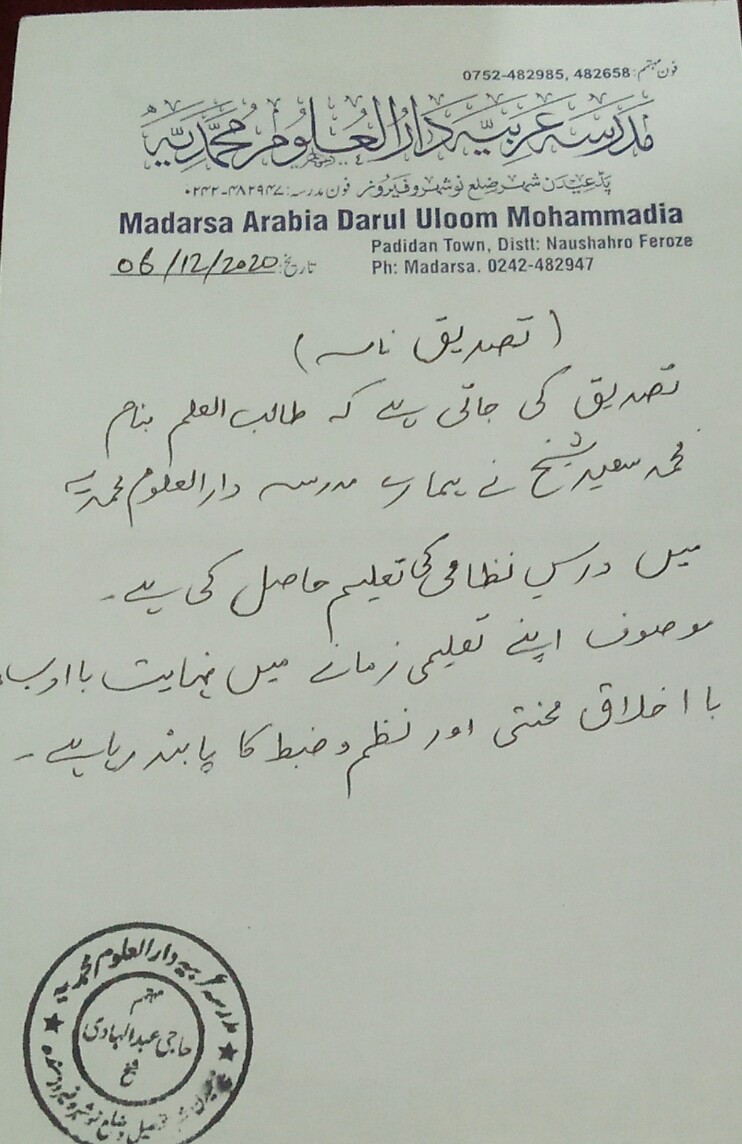 فون مہتمم: 0752-482985, 482658
مدرسہ عربیہ دارالعلوم محمدیہ
پڈعیدن شہر ضلع نوشہرو فیروز فون مدرسہ: ۰۲۴۲-۴۸۲۹۴۷
Madarsa Arabia Darul Uloom Mohammadia
Padidan Town, Distt: Naushahro Feroze
تاریخ: 06/12/2020
Ph: Madarsa. 0242-482947
(تصدیق نامہ)
تصدیق کی جاتی ہے کہ طالب العلم بنام
محمد سعید شیخ نے ہمارے مدرسہ دارالعلوم محمدیہ
میں درس نظامی کی تعلیم حاصل کی ہے۔
موصوف اپنے تعلیمی زمانے میں نہایت باادب،
با اخلاق محنتی اور نظم و ضبط کا پابند رہا ہے۔
مدرسہ عربیہ دارالعلوم محمدیہ
مہتمم
حاجی عبدالہادی
شیخ